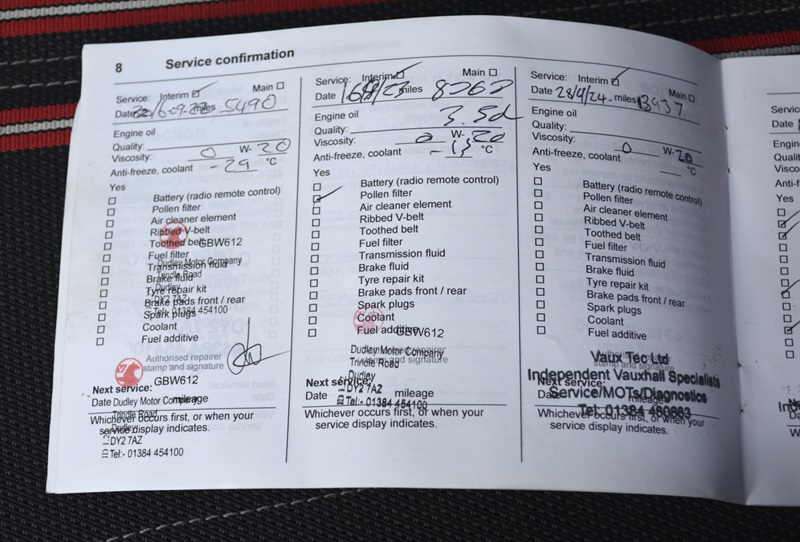 8 Service confirmation
Service: Interim Main
Date miles 5490
Engine oil
Quality:
Viscosity: 0 W- 20
Anti-freeze, coolant - 29 °C
Yes
Battery (radio remote control)
Pollen filter
Air cleaner element
Ribbed V-belt
Toothed belt GBW612
Fuel filter
Dudley Motor Company
Transmission fluid
Trindle Road
Brake fluid
Tyre repair kit
DY2 7AZ
Brake pads front / rear
Tel:- 01384 454100
Spark plugs
Coolant
Fuel additive
Authorised repairer
stamp and signature
GBW612
Next service:
Date Dudley Motor Company mileage
Trindle Road
Whichever occurs first, or when your
Dudley
service display indicates.
DY2 7AZ
Tel:- 01384 454100
Service: Interim Main
Date miles
Engine oil
Quality:
Viscosity: 0 W- 20
Anti-freeze, coolant °C
Yes
Battery (radio remote control)
Pollen filter
Air cleaner element
Ribbed V-belt
Toothed belt
Fuel filter
Transmission fluid
Brake fluid
Tyre repair kit
Brake pads front / rear
Spark plugs
Coolant
Fuel additive GBW612
Dudley Motor Company
stamp and signature
Trindle Road
Dudley
Next service:
DY2 7AZ
Date mileage
Tel:- 01384 454100
Whichever occurs first, or when your
service display indicates.
Service: Interim Main
Date 28/9/24 miles 13937
Engine oil
Quality:
Viscosity: 0 W- 20
Anti-freeze, coolant °C
Yes
Battery (radio remote control)
Pollen filter
Air cleaner element
Ribbed V-belt
Toothed belt
Fuel filter
Transmission fluid
Brake fluid
Tyre repair kit
Brake pads front / rear
Spark plugs
Coolant
Fuel additive
Vaux Tec Ltd
stamp and signature
Independent Vauxhall Specialists
Next service:
Service/MOTs/Diagnostics
Date mileage
Whichever occurs first, or when your
service display indicates.
Yes